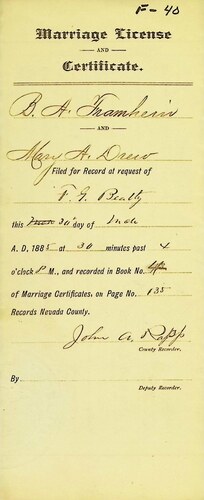 F-40
Marriage License
AND
Certificate.
B. A. Framhein
AND
Mary A. Drew
Filed for Record at request of
F. G. Beatty
this 30th day of
A. D. 1885 at 30 minutes past 4
o'clock P. M., and recorded in Book No.
of Marriage Certificates, on Page No. 135
Records Nevada County.
John A. Rapp
County Recorder.
By
Deputy Recorder.